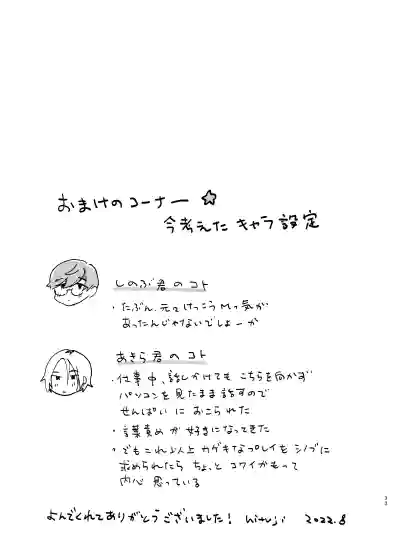 おまけのコーナー☆
今考えた キャラ設定
しのぶ君のコト
・たぶん、元々けっこうMっ気が
あったんじゃないでしょーか
あきら君のコト
・仕事中、話しかけても こちらを向かず
パソコンを見たまま話すので
せんぱい に おこられた
・言葉責め が 好きになってきた
・でもこれ以上 カゲキなプレイを シノブに
求められたら ちょっと コワイかもって
内心 思っている
よんでくれてありがとうございました! hituji 2022.8
33